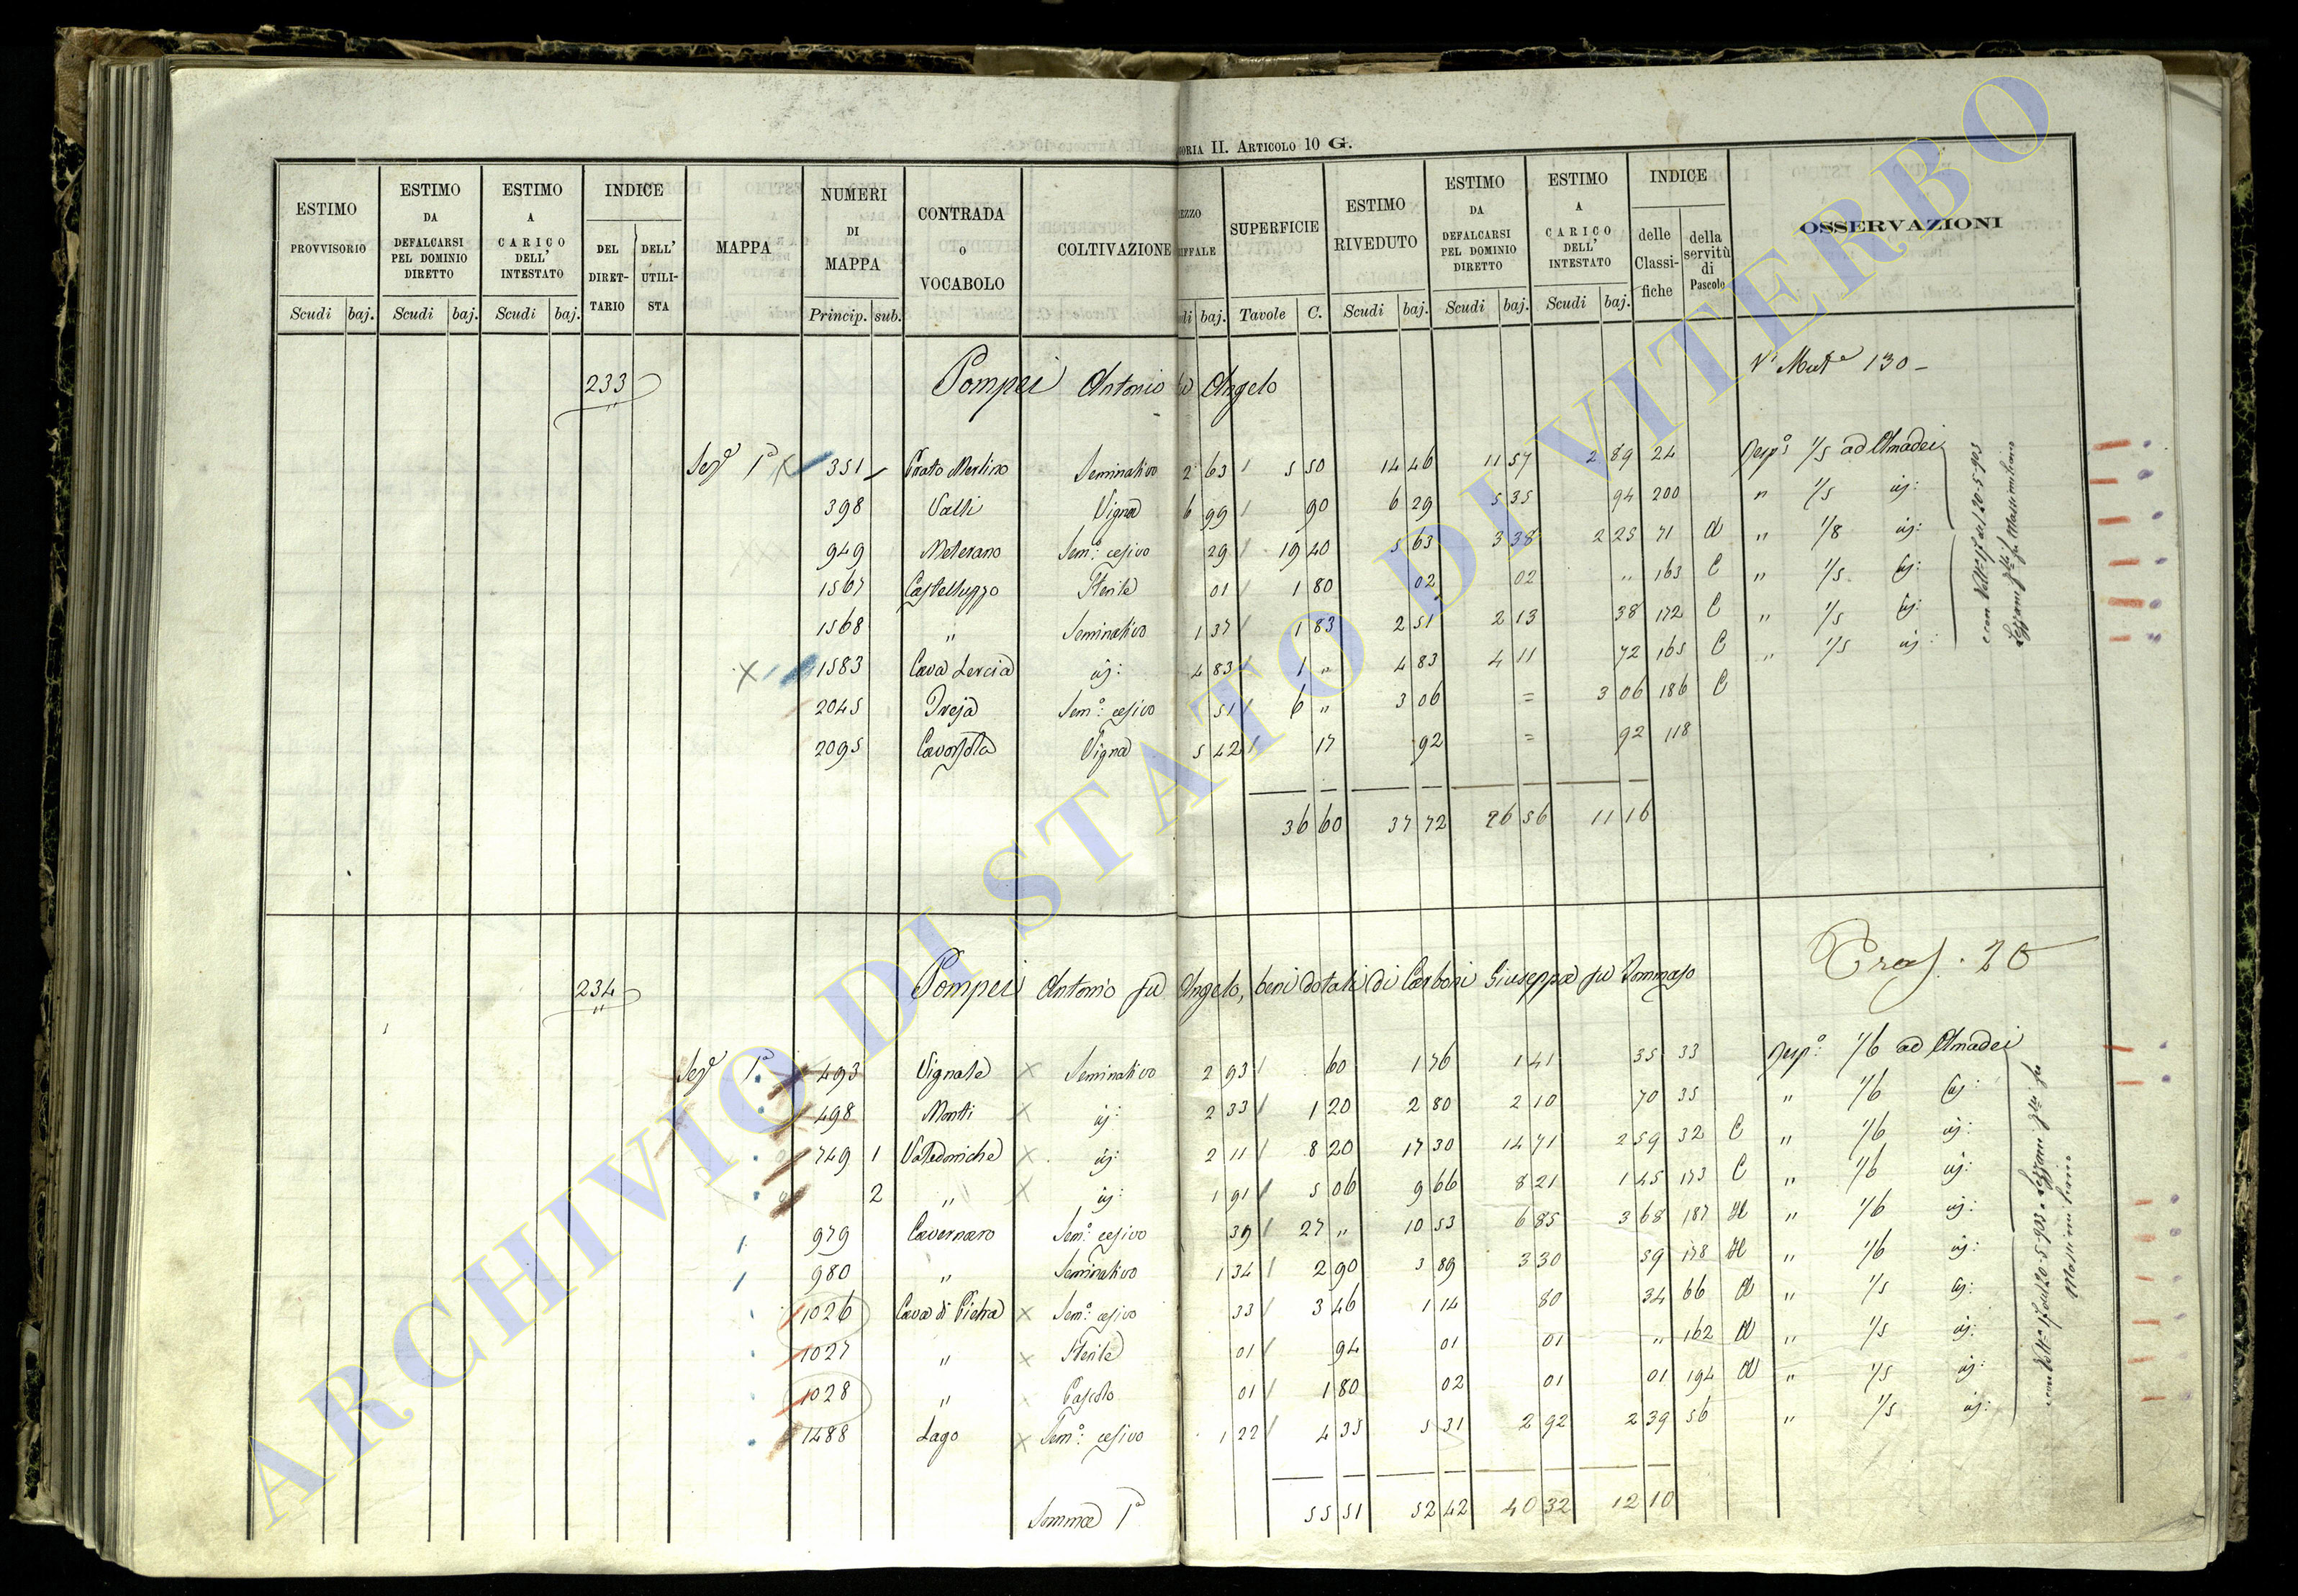 ORIA II. ARTICOLO 10 G.
ESTIMO PROVVISORIO | ESTIMO DA DEFALCARSI PEL DOMINIO DIRETTO | ESTIMO A CARICO DELL' INTESTATO | INDICE DEL DIRET-TARIO | DELL' UTILI-STA | MAPPA | NUMERI DI MAPPA | CONTRADA o VOCABOLO | COLTIVAZIONE | EZZO IFFALE | SUPERFICIE | ESTIMO RIVEDUTO | ESTIMO DA DEFALCARSI PEL DOMINIO DIRETTO | ESTIMO A CARICO DELL' INTESTATO | INDICE delle Classi-fiche | della servitù di Pascolo | OSSERVAZIONI
Scudi baj. Scudi baj. Scudi baj. Princip. sub. di baj. Tavole C. Scudi baj. Scudi baj. Scudi baj.
233 Pompei Antonio fu Angelo 130
Sez.e 1a 351 Prato Merlino Seminativo 2 63 5 50 14 46 11 57 2 89 24 Resp.o 1/5 ad Amadei
398 Valli Vigna 6 99 90 6 29 5 35 94 200 " 1/5 id:
949 Meterano Sem.o cesivo 29 19 40 5 63 3 38 2 25 71 A " 1/8 id:
1567 Castelluzzo Sterile 01 1 80 02 02 " 163 C " 1/5 id:
1568 " Seminativo 1 37 1 83 2 51 2 13 38 172 C " 1/5 id:
1583 Cava Lercia id: 4 83 1 " 4 83 4 11 72 165 C " 1/5 id:
2045 Treja Sem.o cesivo 51 6 " 3 06 = 3 06 186 C
2095 Cavossola Vigna 5 42 17 92 = 92 118
36 60 37 72 26 56 11 16
234 Pompei Antonio fu Angelo, beni dotali di Carboni Giuseppa fu Tommaso
Sez.e 1a 493 Vignale Seminativo 2 93 60 1 76 1 41 35 33 Resp.o 1/6 ad Amadei
498 Monti id: 2 33 1 20 2 80 2 10 70 35 " 1/6 id:
749 1 Valedoniche id: 2 11 8 20 17 30 14 71 2 59 32 C " 1/6 id:
2 " id: 1 91 5 06 9 66 8 21 1 45 173 C " 1/6 id:
979 Cavernaro Sem.o cesivo 39 27 " 10 53 6 85 3 68 187 H " 1/6 id:
980 " Seminativo 1 34 2 90 3 89 3 30 59 178 H " 1/6 id:
1026 Cava di Pietra Sem.o cesivo 33 3 46 1 14 80 34 66 A " 1/5 id:
1027 " Sterile 01 94 01 01 " 162 A " 1/5 id:
1028 " Pascolo 01 1 80 02 01 01 194 A " 1/5 id:
1488 Lago Sem.o cesivo 1 22 4 35 5 31 2 92 2 39 56 " 1/5 id:
Somma 1a 55 51 52 42 40 32 12 10
ARCHIVIO DI STATO DI VITERBO